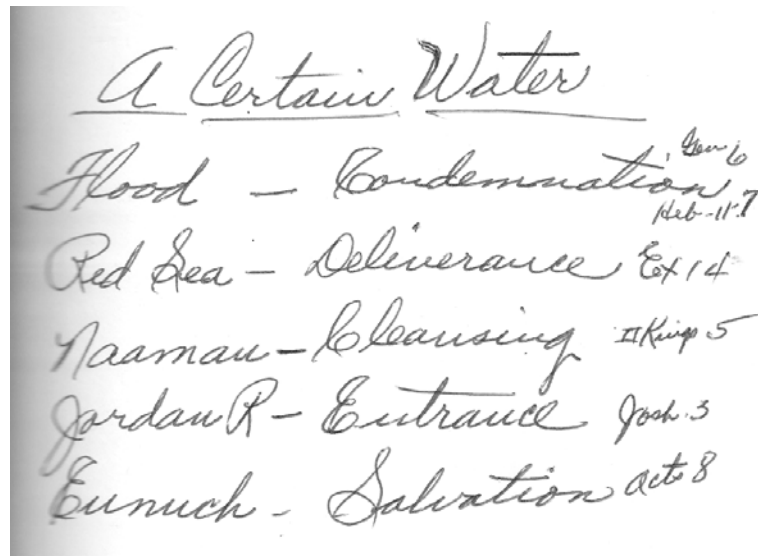 A Certain Water
Flood - Condemnation Gen 6
Heb-11:7
Red Sea - Deliverance Ex 14
Naaman - Cleansing II Kings 5
Jordan R - Entrance Josh. 3
Eunuch - Salvation Acts 8